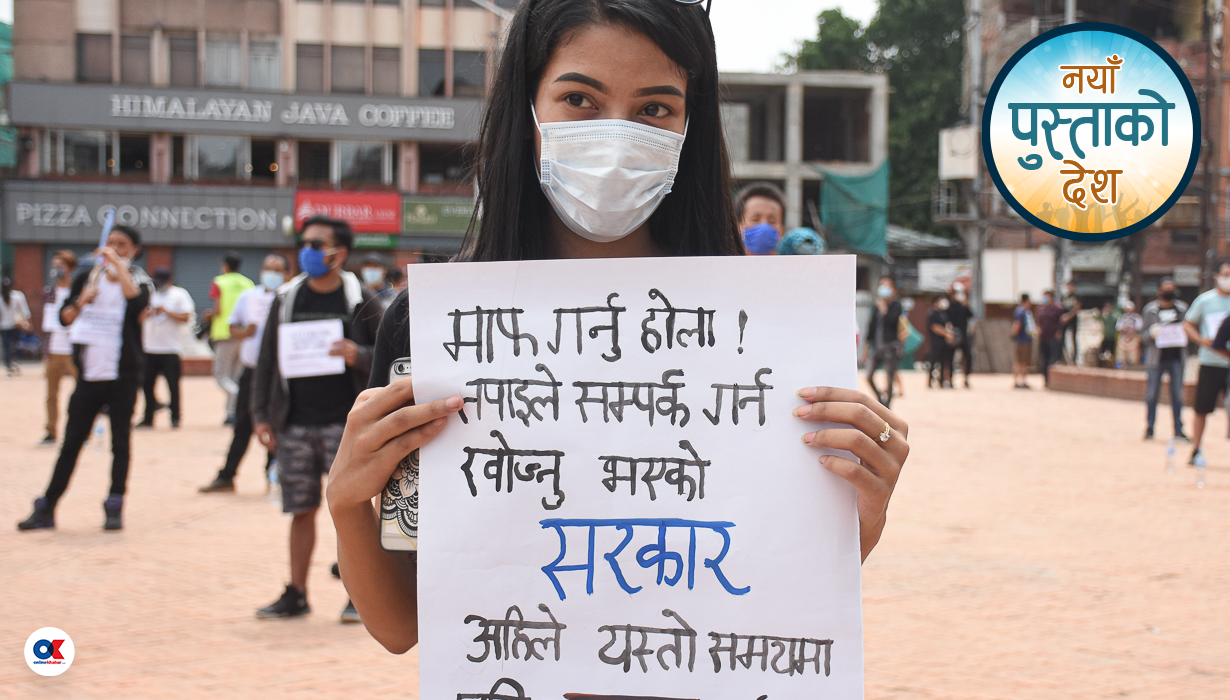 HIMALAYAN JAVA COFFEE
PIZZA CONNECTION
नयाँ
पुस्ताको
देश
माफ गर्नु होला !
तपाइले सम्पर्क गर्न
खोज्नु भएको
सरकार
अहिले यस्तो समयमा
onlinekhabar.com